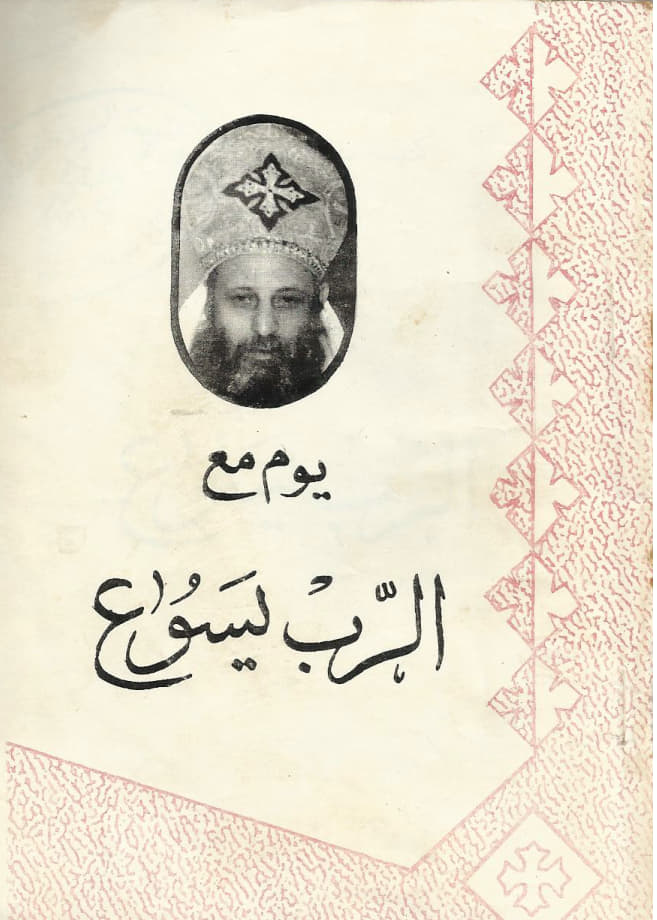 يوم مع
الرَّبْ يَسُوع